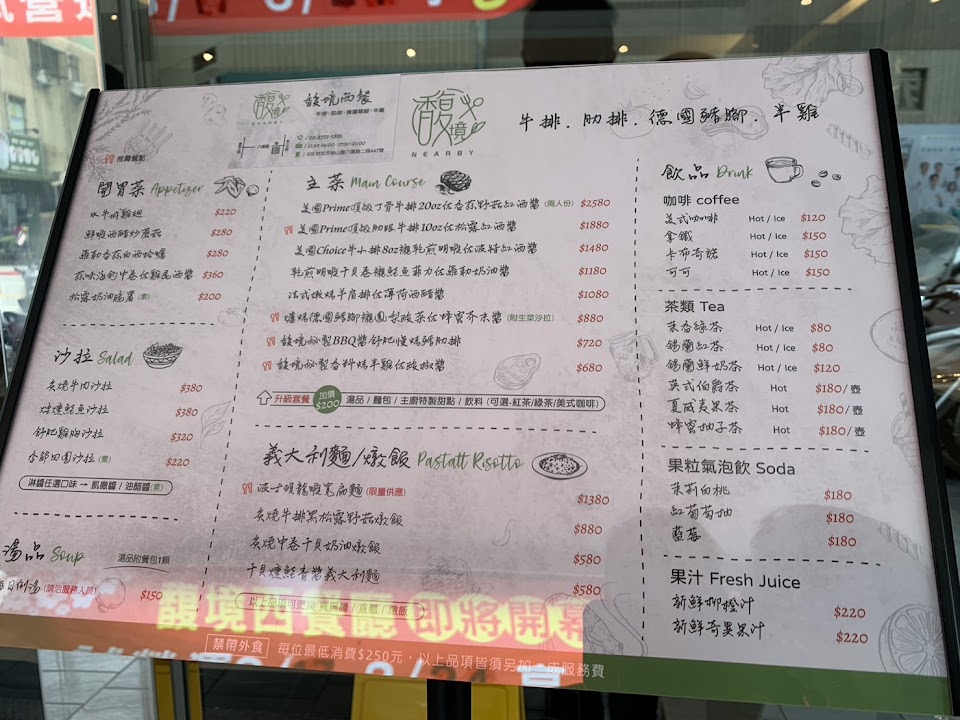 馥境西餐
牛排．肋排．德國豬腳．半雞
馥境
NEARBY
牛排．肋排．德國豬腳．半雞
推薦餐點
開胃菜 Appetizer
水牛城雞翅 $220
鮮蝦西醋炒蘑菇 $280
羅勒香蒜白酒蛤蠣 $280
蒜味油釣中卷佐雞尾酒醬 $360
松露奶油脆薯(素) $200
沙拉 Salad
炙燒牛肉沙拉 $380
煙燻鮭魚沙拉 $380
舒肥雞胸沙拉 $320
季節田園沙拉(素) $220
淋醬任選口味 → 凱撒醬 / 油醋醬(素)
湯品 Soup
湯品附餐包1顆
每日例湯(請洽服務人員) $150
主菜 Main Course
美國Prime頂級丁骨牛排20oz佐香蒜野菇紅酒醬(兩人份) $2580
美國Prime頂級肋眼牛排10oz佐松露紅酒醬 $1880
美國Choice牛小排8oz襯乾煎明蝦佐波特紅酒醬 $1480
乾煎明蝦干貝卷襯鮭魚菲力佐羅勒奶油醬 $1180
法式嫩烤羊肩排佐薄荷酒醋醬 $1080
爐烤德國豬腳襯鳳梨酸菜佐蜂蜜芥末醬(附生菜沙拉) $880
馥境祕製BBQ醬舒肥慢烤豬肋排 $720
馥境祕製香料烤半雞佐酸嫩醬 $680
升級套餐 加價$200 湯品 / 麵包 / 主廚特製甜點 / 飲料 (可選-紅茶/綠茶/美式咖啡)
義大利麵/燉飯 Pastatt Risotto
波士頓龍蝦寬扁麵(限量供應) $1380
炙燒牛排黑松露野菇燉飯 $880
炙燒中卷干貝奶油燉飯 $580
干貝燻鮭青醬義大利麵 $580
以上品項可更換 寬扁麵 / 直麵 / 燉飯
飲品 Drink
咖啡 coffee
美式咖啡 Hot / Ice $120
拿鐵 Hot / Ice $150
卡布奇諾 Hot / Ice $150
可可 Hot / Ice $150
茶類 Tea
茉香綠茶 Hot / Ice $80
錫蘭紅茶 Hot / Ice $80
錫蘭鮮奶茶 Hot / Ice $120
英式伯爵茶 Hot $180/壺
夏威夷果茶 Hot $180/壺
蜂蜜柚子茶 Hot $180/壺
果粒氣泡飲 Soda
茉莉白桃 $180
紅葡萄柚 $180
藍莓 $180
果汁 Fresh Juice
新鮮柳橙汁 $220
新鮮奇異果汁 $220
馥境西餐廳 即將開幕
禁帶外食 每位最低消費$250元，以上品項皆須另加一成服務費